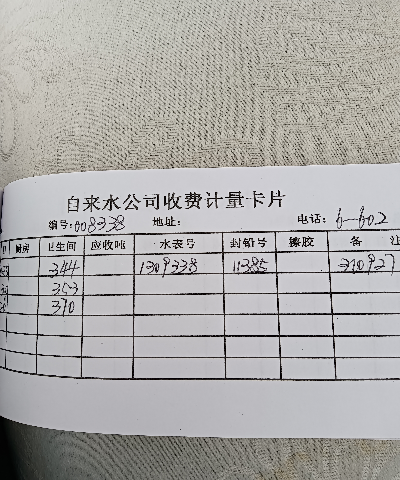 自来水公司收费计量卡片
编号:008338 地址: 电话: 6-602
厨房 卫生间 应收吨 水表号 封铅号 橡胶 备 注
344 1309338 11385 310927
353
370